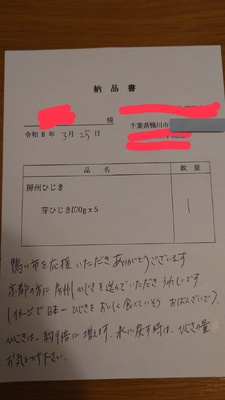 納品書
様
令和 8 年 3月 25日
千葉県鴨川市
品名
数量
房州ひじき
芽ひじき100g x 5
1
鴨川市を応援いただきありがとうございます
京都の方に房州ひじきを選んでいただきうれしいです
(イメージで日本一ひじきをおいしく食べていそう おばんざいで)
ひじきは、約9倍に増えます。水に戻す時は、ひじきの量
お気をつけ下さい。